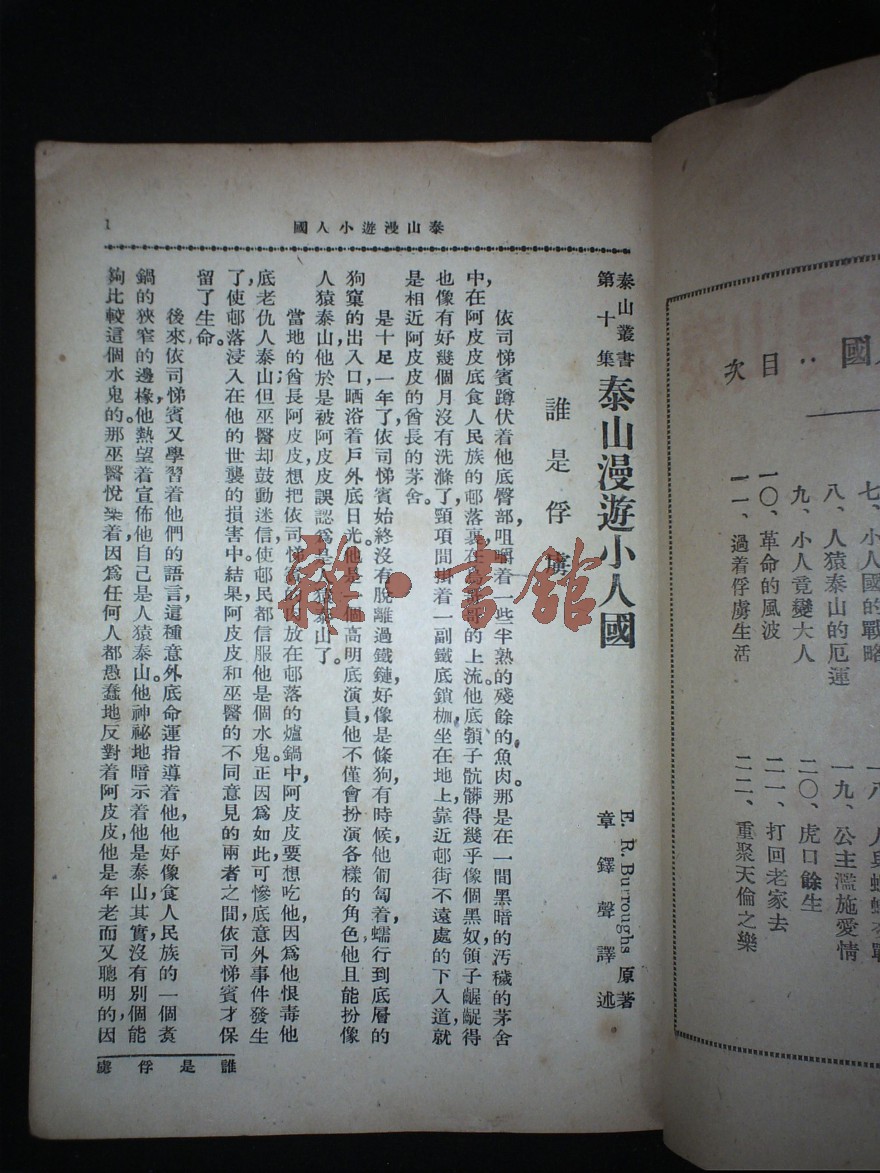 國人小遊漫山泰
1
泰山叢書
第十集
泰山漫遊小人國
E. R. Burroughs 原著
章鐸聲譯述
誰是俘虜
依司悌賓蹲伏着他底臀部，咀嚼着一些半熟的殘餘的魚肉。那是在一間黑暗的汚穢的茅舍
中，在阿皮皮底食人民族的邨落裏在烏 的上流。他底頸子骯髒得幾乎像個黑奴，領子齷齪得
也像有好幾個月沒有洗滌了，頸項間掛着一副鐵底鎖枷，坐在地上，靠近邨街不遠處的下入道，就
是相近阿皮皮的酋長的茅舍。
是十足一年了，依司悌賓始終沒有脫離過鐵鏈，好像是條狗，有時候他匍匐着，蠕行到底層的
狗窠的出入口，晒浴着戶外底日光。他是一個高明底演員，他不僅會扮演各樣的角色，他且能扮像
人猿泰山，他於是被阿皮皮誤認爲是人猿泰山了。
當地的酋長阿皮皮，想把依司悌 放在邨落的爐鍋中，阿皮皮要想吃他，因爲他恨毒他
底老仇人泰山；但巫醫却鼓動迷信，使邨民都信服他是個水鬼。正因爲如此，可慘底意外事件發生
了，使邨落浸入在他的世襲的損害中。結果，阿皮皮和巫醫的不同意見的兩者之間，依司悌賓才保
留了生命。
後來依司悌賓又學習着他們的語言，這種意外底命運指導着他，他好像食人民族的一個煑
鍋的狹窄的邊緣，他熱望着宣佈他自己是人猿泰山。他神祕地暗示着他是泰山，其實，沒有別個能
夠比較這個水鬼的。那巫醫悅樂着，因爲任何人都愚蠢地反對着阿皮皮，他是年老而又聰明的，因
誰是俘虜
國人
目次
七、小人國的戰略
八、人猿泰山的厄運
九、小人竟變大人
一〇、革命的風波
一一、過着俘虜生活
一八、人與
一九、公主濫施愛情
二〇、虎口餘生
二一、打回老家去
二二、重聚天倫之樂
雜·書館